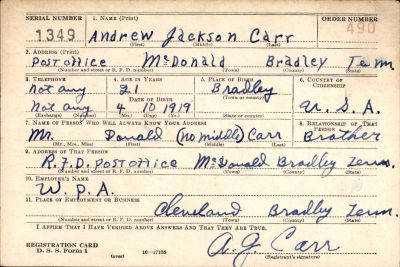 SERIAL NUMBER 1. NAME (Print) ORDER NUMBER
1349 Andrew Jackson Carr 490
(First) (Middle) (Last)
2. ADDRESS (Print)
Postoffice McDonald Bradley Tenn
(Number and street or R. F. D. number) (Town) (County) (State)
3. TELEPHONE 4. AGE IN YEARS 5. PLACE OF BIRTH 6. COUNTRY OF CITIZENSHIP
Not any 21 Bradley
DATE OF BIRTH (Town or county)
Not any 4 10 1919 U. S. A.
(Exchange) (Number) (Mo.) (Day) (Yr.) (State or country)
7. NAME OF PERSON WHO WILL ALWAYS KNOW YOUR ADDRESS 8. RELATIONSHIP OF THAT PERSON
Mr. Donald (no middle) Carr Brother
(Mr., Mrs., Miss) (First) (Middle) (Last)
9. ADDRESS OF THAT PERSON
R.F.D. Postoffice McDonald Bradley Tenn.
(Number and street or R. F. D. number) (Town) (County) (State)
10. EMPLOYER'S NAME
W. P. A.
11. PLACE OF EMPLOYMENT OR BUSINESS
Cleveland Bradley Tenn.
(Number and street or R. F. D. number) (Town) (County) (State)
I AFFIRM THAT I HAVE VERIFIED ABOVE ANSWERS AND THAT THEY ARE TRUE.
REGISTRATION CARD
D. S. S. Form 1 (over) 16—17105 A. J. Carr
(Registrant's signature)